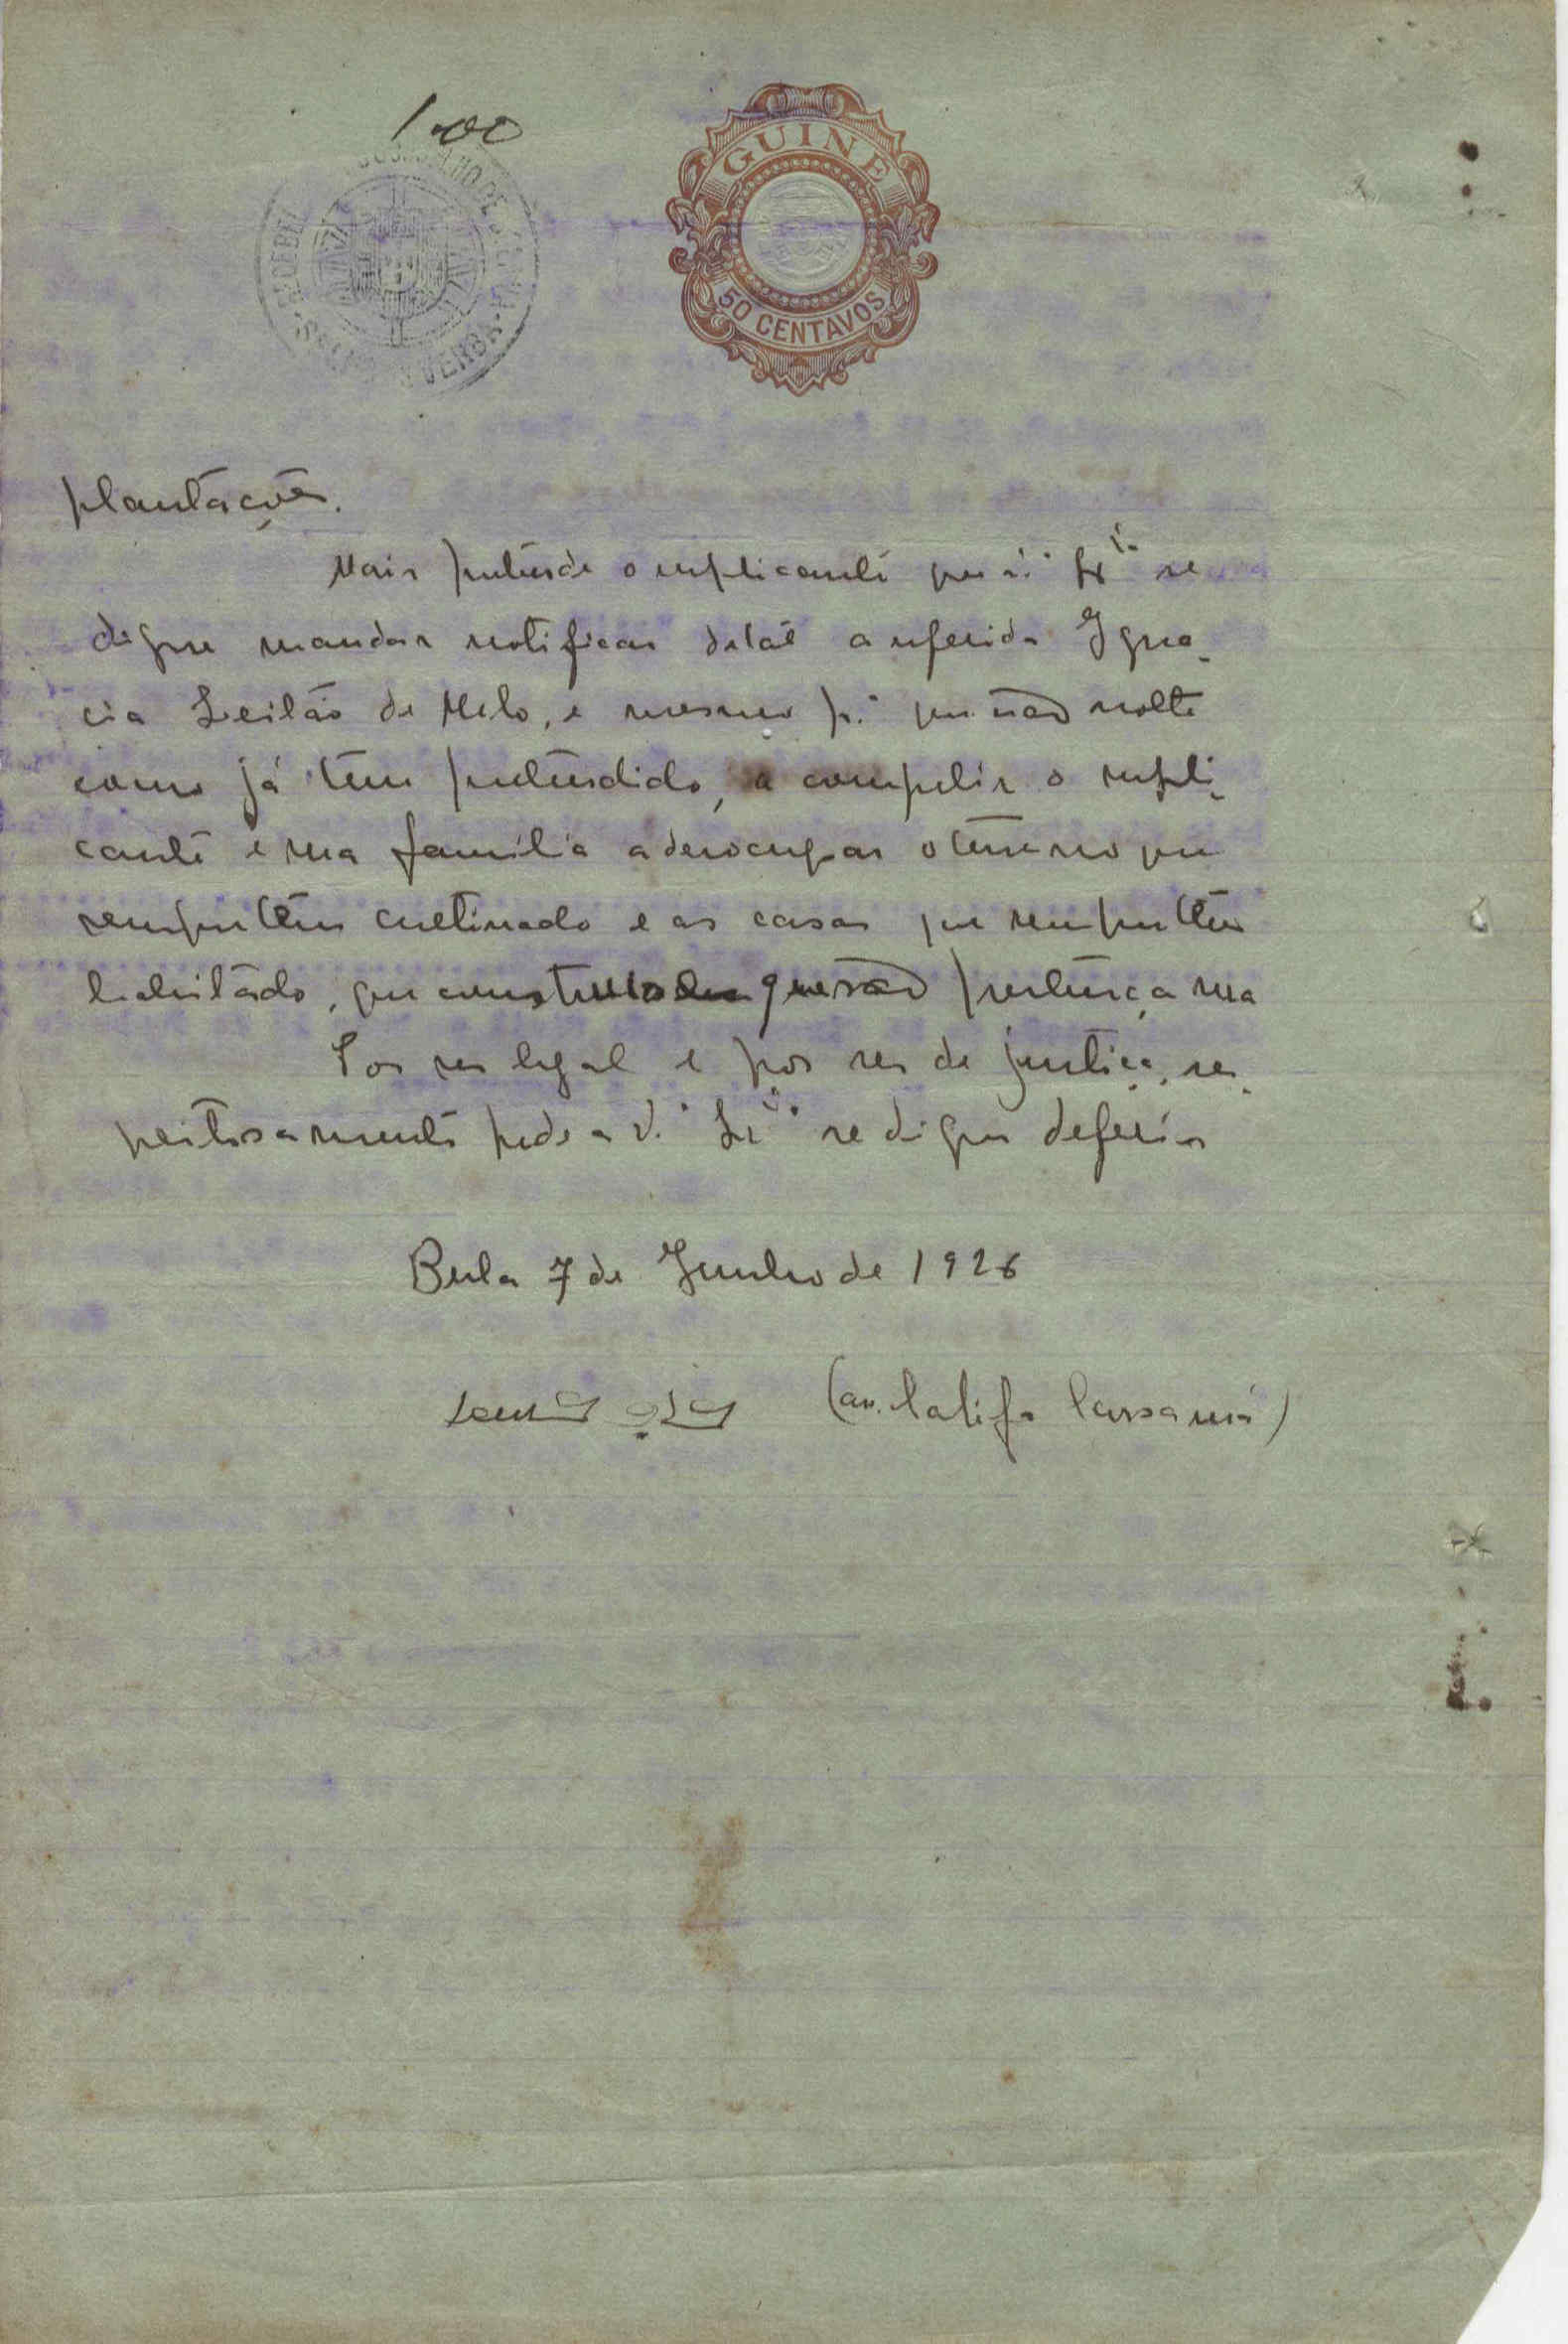 1.00
GUINÉ
50 CENTAVOS
plantações.
Mais pretende o suplicante que V.ª Ex.ª se
digne mandar notificar de tal a referida Igna-
cia Leitão de Melo, e mesmo p.ª que não volte
como já tem pretendido, a compelir o supli-
cante e sua familia a desocupar o terreno que
sempre tem cultivado e as casas que sempre tem
habitado, que construio e que não pertença sua
Por ser legal e por ser de justiça, res-
peitosamente pede a V.ª Ex.ª se digne deferir
Bula 7 de Junho de 1926
(au. Califa Cassamá)